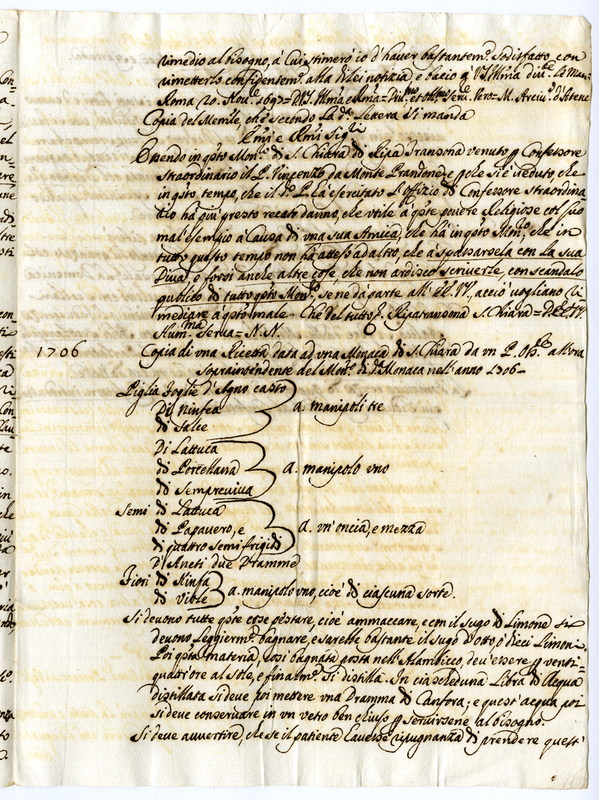 rimedio al bisogno, à cui stimerò io d'haver bastantem.e sodisfatto con
rimetterlo confidentem.te alla di lei notitia, e bacio
Roma 20. Nov.e 1697
Copia del Mem.le, che secondo La d.a Lettera si manda
Em.i e Rm.i Sig.ri
Essendo in q.sto Mon.rio di S. Chiara di Ripa Transona venuto p Confessore
straordinario il P. Vincenzo da Monte Prandone, e p che si è veduto, che
in q.sto tempo, che il d.o P. Là esercitato L'offizio di Confessore straordina
rio hà più presto recato danno, che utile à q.ste povere Religiose col suo
mal'esempio à Causa di una sua Amica, che hà in q.sto Mon.rio che in
tutto questo tempo non hà atteso ad altro, che à spassarsela con La sua
Diva, e forsi anche altre cose, che non ardisco scriverle, con scandalo
publico di tutto q.sto Mon.rio se ne dà parte all' EE. VV., acciò vogliano ri
mediare à q.sto male = Che del tutto Ripatransona S. Chiara = D. EE. VV.
Hum.ma Serva = N. N.
1706 Copia di una Ricetta data ad una Monaca di S. Chiara da un P. Oss.te all'ora
Sopraintendente del Mon.rio di d.a Monaca nell'anno 1706 =
Piglia foglie d'Agno casto
Di Ninfea
di Salce a. manipoli tre
Di Lattuca
di Porcellana a. manipolo uno
di Sempreviva
Semi di Lattuca
di Papavero, e a. un'oncia, e mezza
di quattro semi frigidi
D'Aneti due Dramme
Fiori di Ninfa
di Viole a. manipolo uno, cioè di ciascuna sorte.
Si devono tutte q.ste cose pestare, cioè ammaccare, e con il sugo di Limone si
devono Leggierm.te bagnare, e sarebbe bastante il sugo d'otto, ò dieci Limoni,
Poi q.sta materia, così bagnata posta nell'Alambicco, dev'essere p venti-
quattr'ore al sole, e finalm.te si distilla. In ciascheduna Libra di Acqua
distillata si deve poi mettere una Dramma di Canfora; e quest'acqua poi
si deve conservare in un vetro ben chiuso p servirsene al bisogno.
Si deve avvertire, che se il patiente havesse ripugnanza di prendere quest'